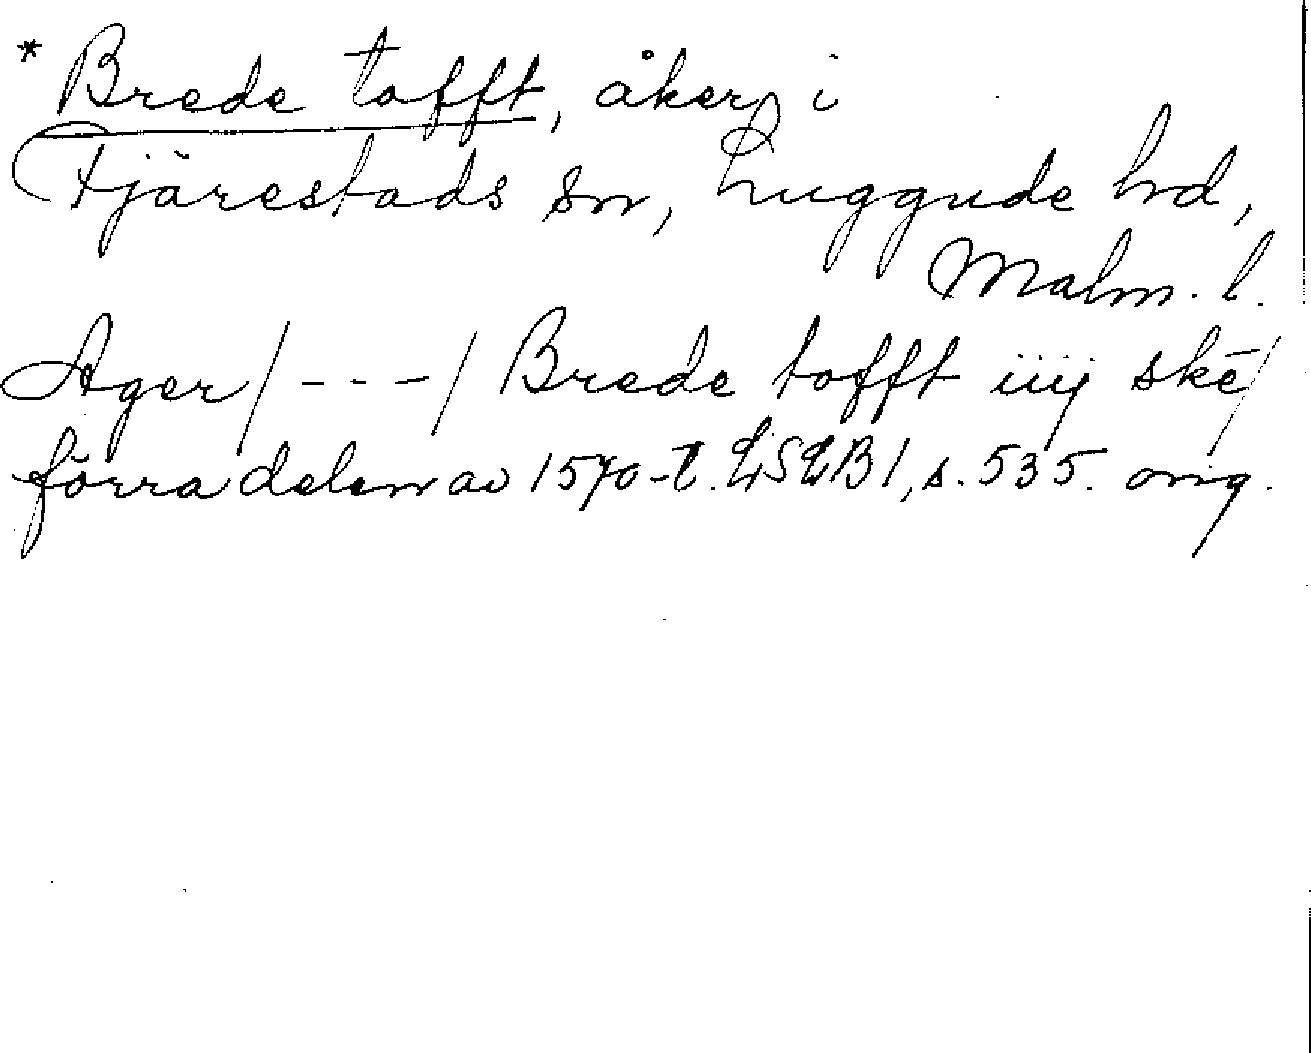 * Brede tofft, åker i
Fjärestads sn, Luggude hd,
Malm. l.
Ager / - - - / Brede tofft iiij skē /
förra delen av 1570-t. LSEB 1, s. 535. orig.